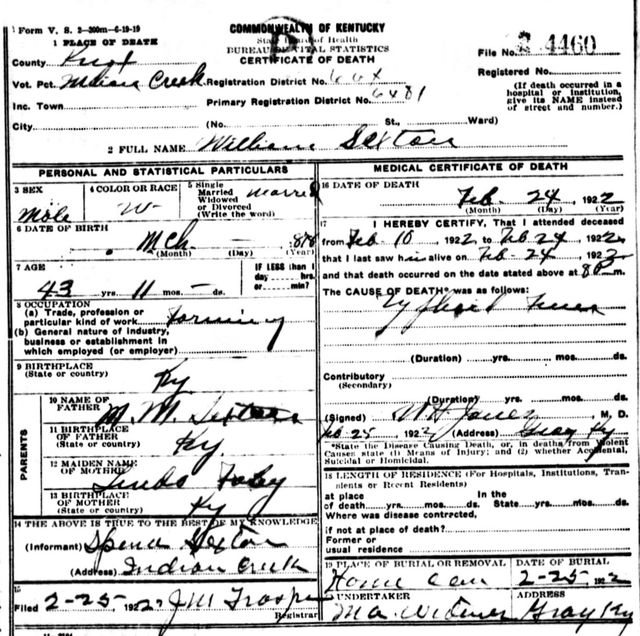 Form V. S. 2-200m-6-19-19
COMMONWEALTH OF KENTUCKY
State Board of Health
BUREAU OF VITAL STATISTICS
CERTIFICATE OF DEATH
1 PLACE OF DEATH
County Knox
File No. 4460
Vot. Pct. Indian Creek Registration District No.
Registered No.
Inc. Town Primary Registration District No. 6481
(If death occurred in a hospital or institution, give its NAME instead of street and number.)
City (No. St., Ward)
2 FULL NAME William Sexton
PERSONAL AND STATISTICAL PARTICULARS
3 SEX
Male
4 COLOR OR RACE
W
5 Single
Married
Widowed
or Divorced
(Write the word)
Married
6 DATE OF BIRTH
Mch 878
(Month) (Day) (Year)
7 AGE
43 yrs. 11 mos. – ds.
IF LESS than 1
day hrs.
or min.?
8 OCCUPATION
(a) Trade, profession or
particular kind of work Farming
(b) General nature of industry,
business or establishment in
which employed (or employer)
9 BIRTHPLACE
(State or country) Ky
PARENTS
10 NAME OF
FATHER M. M. Sexton
11 BIRTHPLACE
OF FATHER
(State or country) Ky.
12 MAIDEN NAME
OF MOTHER
13 BIRTHPLACE
OF MOTHER
(State or country) Ky
14 THE ABOVE IS TRUE TO THE BEST OF MY KNOWLEDGE
(Informant) Sexton
(Address) Indian Creek
15
Filed 2-25, 1922 J M Trosper
Registrar
MEDICAL CERTIFICATE OF DEATH
16 DATE OF DEATH
Feb. 24, 1922
(Month) (Day) (Year)
17 I HEREBY CERTIFY, That I attended deceased
from Feb 10, 1922 to Feb 24, 1922
that I last saw him alive on Feb-24, 1922
and that death occurred on the date stated above at 8 P m.
The CAUSE OF DEATH* was as follows:
Typhoid Fever
(Duration) yrs. mos. ds.
Contributory
(Secondary)
(Duration) yrs. mos. ds.
(Signed) M. D.
Feb-25 1922 (Address) Gray Ky
*State the Disease Causing Death, or, in deaths from Violent
Causes state (1) Means of Injury; and (2) whether Accidental,
Suicidal or Homicidal.
18 LENGTH OF RESIDENCE (For Hospitals, Institutions, Transients or Recent Residents)
at place In the
of death yrs. mos. ds. State yrs. mos. ds.
Where was disease contracted,
if not at place of death?
Former or
usual residence
19 PLACE OF BURIAL OR REMOVAL
Home Cem
DATE OF BURIAL
2-25, 1922
20 UNDERTAKER
ADDRESS
Gray Ky